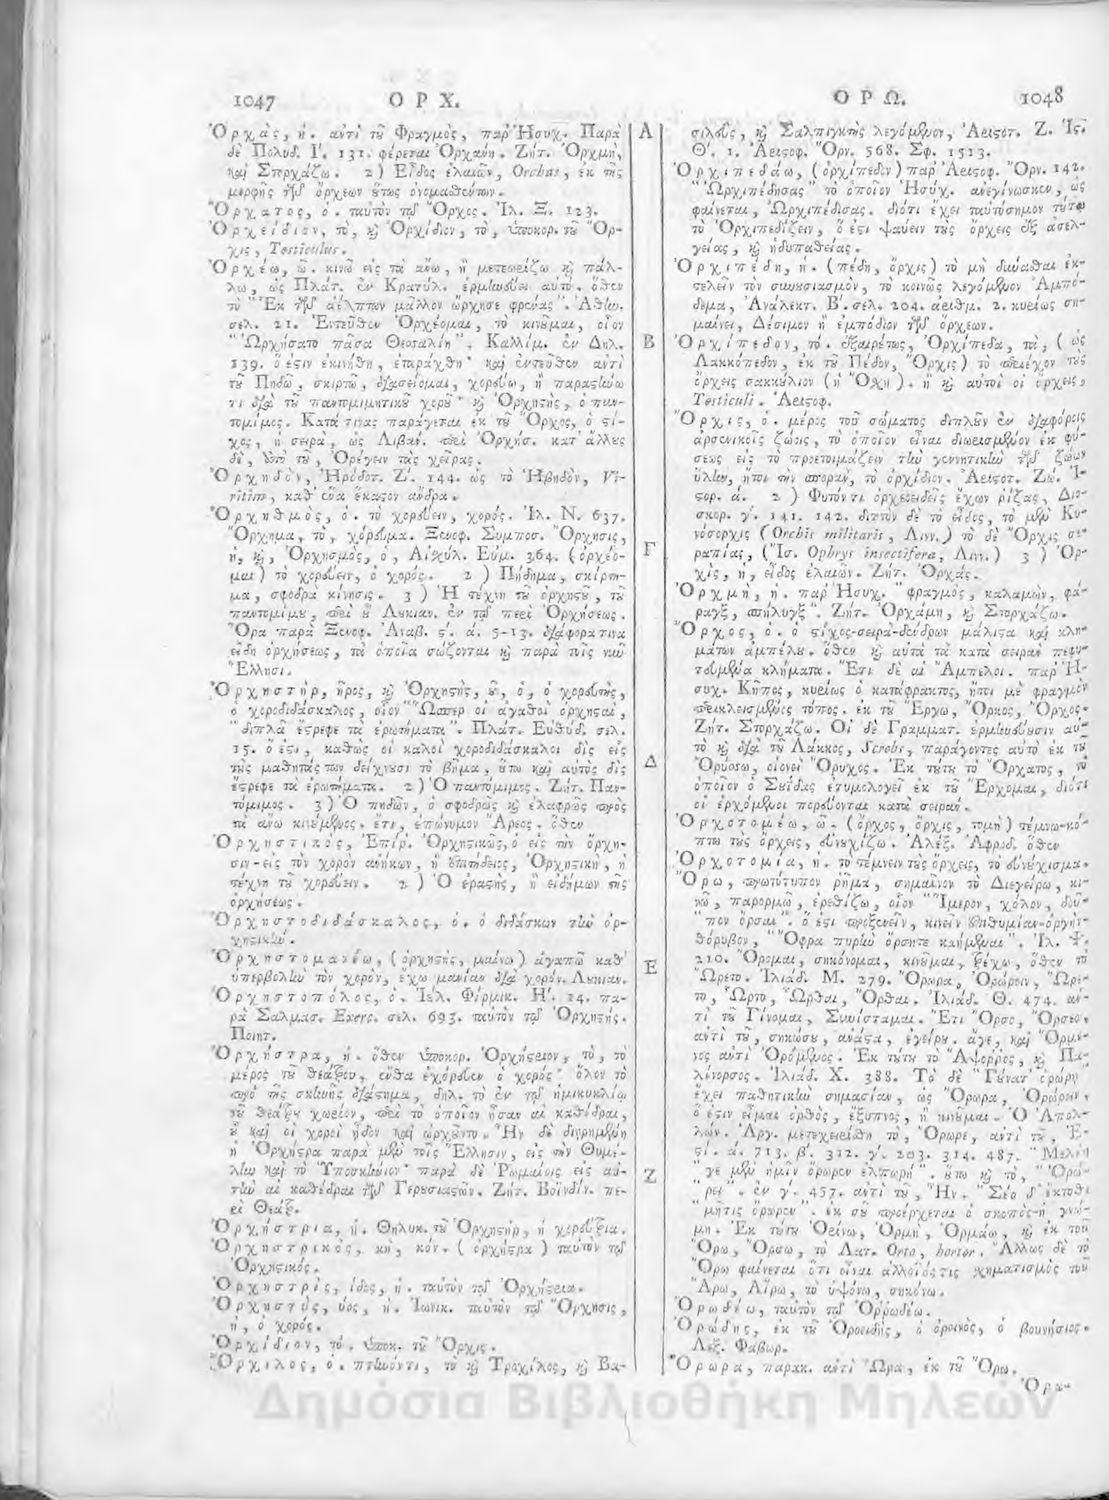 1047 ΟΡΧ.
Ὀρχὰς, ἡ. ἀντὶ τοῦ Φραγμὸς, παρ' Ἡσυχ. Παρὰ
δὲ Πολυδ. Ι'. 131. φέρεται Ὀρχάνη. Ζήτ. Ὀρχμὴ,
καὶ Στορχάζω. 2) Εἶδος ἐλαιῶν, Orchas, ἐκ τῆς
μορφῆς τῶν ὄρχεων οὕτως ὀνομασθεῖσαν.
Ὄρχατος, ὁ. ταὐτὸν τῷ Ὄρχος. Ἰλ. Ξ. 123.
Ὀρχείδιον, τὸ, καὶ Ὀρχίδιον, τὸ, ὑποκορ. τοῦ Ὄρ-
χις, Testiculus.
Ὀρχέω, ῶ. κινῶ εἰς τὰ ἄνω, ἢ μετεωρίζω καὶ πάλ-
λω, ὡς Πλάτ. ἐν Κρατύλ. ἑρμηνεύει αὐτό. ὅθεν
τὸ "Ἐκ τῶν ἀέλπτων μᾶλλον ὤρχησε φρένας". Ἀθήν.
σελ. 21. Ἐντεῦθεν Ὀρχέομαι, τὸ κινοῦμαι, οἷον
"Ὠρχήσατο πᾶσα Θεσσαλίη". Καλλίμ. ἐν Δήλ.
139. ὅ ἐστιν ἐκινήθη, ἐταράχθη· καὶ ἐντεῦθεν ἀντὶ
τοῦ Πηδῶ, σκιρτῶ, διασείομαι, χορεύω, ἢ παραστήνω
τι διὰ τοῦ παντομιμητικοῦ χοροῦ· καὶ Ὀρχηστὴς, ὁ παν-
τομίμος. Κατά τινας παράγεται ἐκ τοῦ Ὄρχος, ὁ στί-
χος, ἡ σειρὰ, ὡς Λιβάν. περὶ Ὀρχήσ. κατ' ἄλλους
δὲ, ἀπὸ τοῦ, Ὀρέγειν τὰς χεῖρας.
Ὀρχηδὸν, Ἡρόδοτ. Ζ'. 144. ὡς τὸ Ἡβηδὸν, Vi-
ritim, καθ' ἕνα ἕκαστον ἄνδρα.
Ὀρχηθμὸς, ὁ. τὸ χορεύειν, χορός. Ἰλ. Ν. 637.
Ὄρχημα, τὸ, χόρευμα. Ξενοφ. Συμποσ. Ὄρχησις,
ἡ, καὶ, Ὀρχησμὸς, ὁ, Αἰσχύλ. Εὐμ. 364. (ὀρχέο-
μαι) τὸ χορεύειν, ὁ χορός. 2) Πήδημα, σκίρτη-
μα, σφοδρὰ κίνησις. 3) Ἡ τέχνη τοῦ ὀρχηστοῦ, τοῦ
παντομίμου, περὶ οὗ Λουκιαν. ἐν τῷ περὶ Ὀρχήσεως.
Ὅρα παρὰ Ξενοφ. Ἀναβ. ς'. ά. 5-13. διάφορά τινα
εἴδη ὀρχήσεως, τὰ ὁποῖα σώζονται καὶ παρὰ τοῖς νῦν
Ἕλλησι.
Ὀρχηστὴρ, ῆρος, καὶ Ὀρχηστὴς, οῦ, ὁ, ὁ χορευτὴς,
ὁ χοροδιδάσκαλος, οἷον "Ὥσπερ οἱ ἀγαθοὶ ὀρχησταὶ,
"διπλᾶ ἔστρεφε τὰ ἐρωτήματα". Πλάτ. Εὐθύδ. σελ.
15. ὅ ἐστι, καθὼς οἱ καλοὶ χοροδιδάσκαλοι δὶς εἰς
τοὺς μαθητάς των δείχνουσι τὸ βῆμα, οὕτω καὶ αὐτὸς δὶς
ἔστρεφε τὰ ἐρωτήματα. 2) Ὁ παντομίμος. Ζήτ. Παν-
τόμιμος. 3) Ὁ πηδῶν, ὁ σφοδρῶς καὶ ἐλαφρῶς πρὸς
τὰ ἄνω κινούμενος. ἔτι, ἐπώνυμον Ἄρεος. ὅθεν
Ὀρχηστικὸς, Ἐπίρ. Ὀρχηστικῶς, ὁ εἰς τὴν ὄρχη-
σιν-εἰς τὸν χορὸν ἀνήκων, ἢ ἐπιτήδειος, Ὀρχηστικὴ, ἡ
τέχνη τοῦ χορεύειν. 2) Ὁ ἐραστὴς, ἢ εἰδήμων τῆς
ὀρχήσεως.
Ὀρχηστοδιδάσκαλος, ὁ. ὁ διδάσκων τὴν ὀρ-
χηστικήν.
Ὀρχηστομανέω, (ὀρχηστὴς, μαίνω) ἀγαπῶ καθ'
ὑπερβολὴν τὸν χορὸν, ἔχω μανίαν διὰ χορόν. Λουκιαν.
Ὀρχηστοπόλος, ὁ. Ἰελ. Φίρμικ. Η'. 14. πα-
ρὰ Σαλμασ. Exerc. σελ. 693. ταὐτὸν τῷ Ὀρχηστής.
Ποιητ.
Ὀρχήστρα, ἡ. ὅθεν ὑποκορ. Ὀρχήστριον, τὸ, τὸ
μέρος τοῦ θεάτρου, ἔνθα ἐχόρευεν ὁ χορός· ὅλον τὸ
ἀπὸ τῆς σκηνῆς διάστημα, δηλ. τὸ ἐν τῷ ἡμικυκλίῳ
τοῦ θεάτρου χωρίον, περὶ τὸ ὁποῖον ἦσαν αἱ καθέδραι,
οὗ καὶ οἱ χοροὶ ᾖδον καὶ ὠρχοῦντο. Ἦν δὲ διῃρημένη
ἡ Ὀρχήστρα παρὰ μὲν τοῖς Ἕλλησιν, εἰς τὴν Θυμέ-
λην καὶ τὸ Ὑποσκήνιον· παρὰ δὲ Ῥωμαίοις εἰς αὐ-
τὴν αἱ καθέδραι τῶν Γερουσιαστῶν. Ζήτ. Βοϊνδίν. πε-
ρὶ Θεάτρ.
Ὀρχήστρια, ἡ. Θηλυκ. τοῦ Ὀρχηστὴρ, ἡ χορεύτρια.
Ὀρχηστρικὸς, κὴ, κόν. (ὀρχήστρα) ταὐτὸν τῷ
Ὀρχηστικός.
Ὀρχηστρὶς, ίδος, ἡ. ταὐτὸν τῷ Ὀρχήστρια.
Ὀρχηστὺς, ύος, ἡ. Ἰωνικ. ταὐτὸν τῷ Ὄρχησις,
ἡ, ὁ χορός.
Ὀρχίδιον, τό. ὑποκ. τοῦ Ὄρχις.
Ὀρχίλος, ὁ. πτηνόντι, τὸ καὶ Τροχίλος, καὶ Βα-
Α
Β
Γ
Δ
Ε
Ζ
ΟΡΩ. 1048
σιλεὺς, καὶ Σαλπιγκτὴς λεγόμενον, Ἀριστοτ. Ζ. Ἱς.
Θ'. 1. Ἀριστοφ. Ὄρν. 568. Σφ. 1513.
Ὀρχιπεδάω, (ὀρχίπεδον) παρ' Ἀριστοφ. Ὄρν. 142.
"Ὠρχιπέδησας" τὸ ὁποῖον Ἡσύχ. ἀνεγίνωσκεν, ὡς
φαίνεται, Ὠρχιπέδισας. διότι ἔχει ταυτόσημον τούτῳ
τὸ Ὀρχιπεδίζειν, ὅ ἐστι ψαύειν τοὺς ὄρχεις ἐξ ἀσελ-
γείας, καὶ ἡδυπαθείας.
Ὀρχιπέδη, ἡ. (πέδη, ὄρχις) τὸ μὴ δύνασθαι ἐκ-
τελεῖν τὸν συνουσιασμὸν, τὸ κοινῶς λεγόμενον Ἀμπό-
δεμα, Ἀνάλεκτ. Β'. σελ. 204. ἀριθμ. 2. κυρίως ση-
μαίνει, Δέσιμον ἢ ἐμπόδιον τῶν ὄρχεων.
Ὀρχίπεδον, τό. ἐξαιρέτως, Ὀρχίπεδα, τὰ, (ὡς
Λακκόπεδον, ἐκ τοῦ Πέδον, Ὄρχις) τὸ περιέχον τοὺς
ὄρχεις σακκούλιον (ἢ Ὄχη). ἢ καὶ αὐτοὶ οἱ ὄρχεις,
Testiculi. Ἀριστοφ.
Ὄρχις, ὁ. μέρος τοῦ σώματος διπλοῦν ἐν διαφόροις
ἀρσενικοῖς ζώοις, τὸ ὁποῖον εἶναι διωρισμένον ἐκ φύ-
σεως εἰς τὸ προετοιμάζειν τὴν γεννητικὴν τῶν ζώων
ὕλην, ἤτοι τὴν σποράν, τὸ ὀρχίδιον. Ἀριστοτ. Ζώ. Ἱ-
στορ. ά. 2) Φυτόν τι ὀρχεοειδεῖς ἔχων ῥίζας, Διο-
σκορ. γ'. 141. 142. διττὸν δὲ τὸ εἶδος, τὸ μὲν Κυ-
νόσορχις (Orchis militaris, Λινν.) τὸ δὲ Ὄρχις σε-
ραπίας, (Ἴσ. Ophrys insectifera, Λινν.) 3) Ὄρ-
χις, ἡ, εἶδος ἐλαιῶν. Ζήτ. Ὀρχάς.
Ὀρχμὴ, ἡ. παρ' Ἡσυχ. "φραγμὸς, καλαμὼν, φά-
ραγξ, σπήλυγξ". Ζήτ. Ὀρχάμη, καὶ Στορχάζω.
Ὄρχος, ὁ. ὁ στίχος-σειρὰ-δένδρων μάλιστα καὶ κλη-
μάτων ἀμπέλου. ὅθεν καὶ αὐτὰ τὰ κατὰ σειρὰν πεφυ-
τευμένα κλήματα. Ἔτι δὲ αἱ Ἄμπελοι. παρ' Ἡ-
συχ. Κῆπος, κυρίως ὁ κατάφρακτος, ἤτοι μὲ φραγμὸν
περικλεισμένος τόπος. ἐκ τοῦ Ἔργω, Ὄρκος, Ὄρχος.
Ζήτ. Στορχάζω. Οἱ δὲ Γραμματ. ἑρμηνεύουσιν αὐ-
τὸ καὶ διὰ τοῦ Λάκκος, Scrobs, παράγοντες αὐτὸ ἐκ τοῦ
Ὀρύσσω, οἱονεὶ Ὄρυχος. Ἐκ τούτου τὸ Ὄρχατος, τὸ
ὁποῖον ὁ Σουΐδας ἐτυμολογεῖ ἐκ τοῦ Ἔρχομαι, διότι
οἱ ἐρχόμενοι πορεύονται κατὰ σειράν.
Ὀρχοτομέω, ῶ. (ὄρχος, ὄρχις, τομὴ) τέμνω-κό-
πτω τοὺς ὄρχεις, εὐνουχίζω. Ἀλέξ. Ἀφροδ. ὅθεν
Ὀρχοτομία, ἡ. τὸ τέμνειν τοὺς ὄρχεις, τὸ εὐνούχισμα.
Ὄρω, πρωτότυπον ῥῆμα, σημαῖνον τὸ Διεγείρω, κι-
νῶ, παρορμῶ, ἐρεθίζω, οἷον "Ἵμερον, χόλον, δοῦ-
"πον ὄρσαι". ὅ ἐστι προξενεῖν, κινεῖν ἐπιθυμίαν-ὀργὴν-
θόρυβον, "Ὄφρα πυρὴν ὄρσητε καήμεναι". Ἰλ. Ψ.
210. Ὄρομαι, σηκόνομαι, κινοῦμαι, τρέχω, ὅθεν τὸ
Ὤρετο. Ἰλιάδ. Μ. 279. Ὄρωρα, Ὀρώρειν, Ὤρε-
το, Ὦρτο, Ὦρθαι, Ὄρθαι. Ἰλιάδ. Θ. 474. ἀν-
τὶ τοῦ Γίνομαι, Συνίσταμαι. Ἔτι Ὄρσο, Ὄρσεο.
ἀντὶ τοῦ, σηκώσου, ἀνάστα, ἐγείρου. ἄγε, καὶ Ὄρμε-
νος ἀντὶ Ὀρόμενος. Ἐκ τούτου τὸ Ἄψορρος, καὶ Πα-
λίνορσος. Ἰλιάδ. Χ. 388. Τὸ δὲ "Γούνατ' ὀρώρῃ"
ἔχει παθητικὴν σημασίαν, ὡς Ὄρωρα, Ὀρώρειν,
ὅ ἐστιν εἶμαι ὀρθὸς, ἔξυπνος, ἢ κινοῦμαι. Ὁ Ἀπολ-
λών. Ἀργ. μετεχειρίσθη τὸ, Ὄρωρε, ἀντὶ τοῦ, Ἔ-
στι. ά. 713. β'. 312. γ'. 203. 314. 487. "Μελέη
"γε μὲν ἡμῖν ὄρωρεν ἐλπωρή". οὕτω καὶ τὸ, "Ὀρώ-
ρει". ἐν γ'. 457. ἀντὶ τοῦ, Ἦν. "Σέο δ' ἔκτοθι
"μῆτις ὄρωρεν". ἐκ σοῦ προέρχεται ὁ σκοπὸς-ἡ γνώ-
μη. Ἐκ τούτου Ὀρίνω, Ὁρμὴ, Ὁρμάω, καὶ ἐκ τοῦ
Ὄρω, Ὄρσω, τὸ Λατ. Orto, hortor. Ἄλλως δὲ τὸ
Ὄρω φαίνεται ὅτι εἶναι ἀλλοῖός τις σχηματισμὸς τοῦ
Ἄρω, Αἴρω, τὸ ὑψόνω, σηκόνω.
Ὀρωδέω, ταὐτὸν τῷ Ὀρρωδέω.
Ὀρώδης, ἐκ τοῦ Ὀροειδὴς, ὁ ὀρεινὸς, ὁ βουνήσιος.
Λεξ. Φαβωρ.
Ὄρωρα, παρακ. ἀντὶ Ὦρα, ἐκ τοῦ Ὄρω.
Ὀρω-
Δημόσια Βιβλιοθήκη Μηλεών